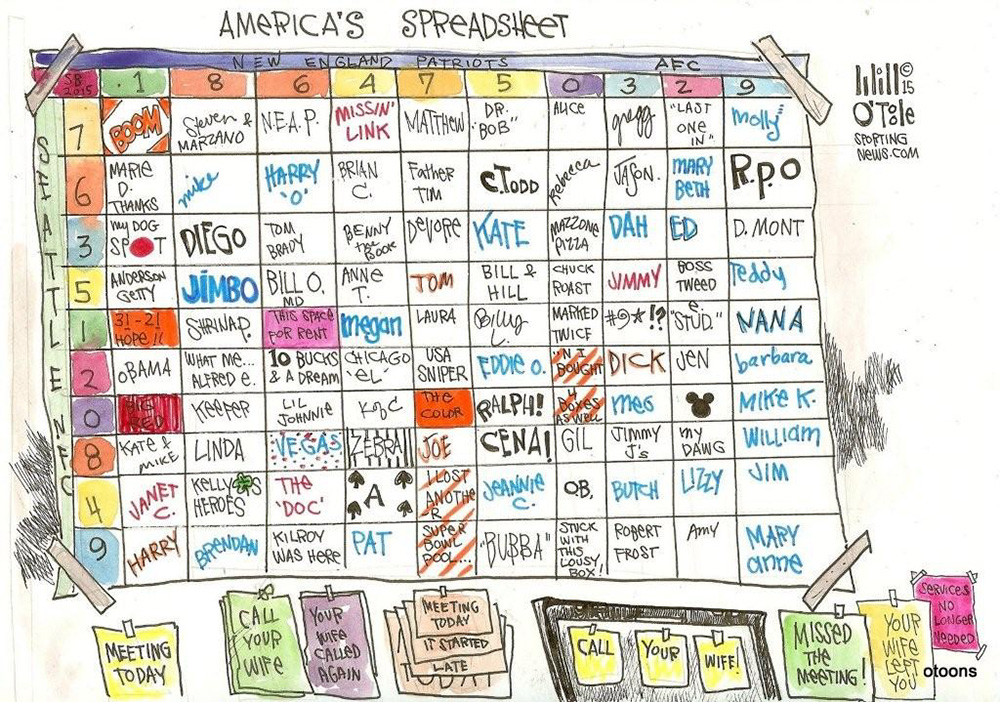 AMERICA'S SPREADSHEET
NEW ENGLAND PATRIOTS AFC
SB 2015 1 8 6 4 7 5 0 3 2 9
Will ©
15
O'Tole
SPORTING
NEWS.COM
SEATTLE NFC
7 BOOM STEVEN & MARZANO N.E.A.P. MISSIN' LINK MATTHEW DR. "BOB" ALICE gregg "LAST ONE IN" Molly
6 MARIE D. THANKS mike HARRY 'O' BRIAN C. FATHER TIM C.TODD Rebecca JASON. MARY BETH R.P.O
3 MY DOG SPOT DIEGO TOM BRADY BENNY THE BOOK DEVORE KATE MAZZONE PIZZA DAH ED D. MONT
5 ANDERSON GETTY JIMBO BILL O. MD ANNE T. TOM BILL & HILL CHUCK ROAST JIMMY BOSS TWEED Teddy
1 31-21 HOPE!! SHRINAP. THIS SPACE FOR RENT megan LAURA Billy L. MARKED TWICE #9*!? e. "STUD." NANA
2 OBAMA WHAT ME... ALFRED E. 10 BUCKS & A DREAM CHICAGO 'EL' USA SNIPER EDDIE O. BOUGHT DICK JEN barbara
0 BIG RED KEEFER LIL JOHNNIE THE COLOR RALPH! BOXES AS WELL MEG MIKE K.
8 KATE & MIKE LINDA VEGAS ZEBRA JOE CENA! GIL JIMMY J's MY DAWG William
4 JANET C. KELLY'S HEROES THE 'DOC' A I LOST ANOTHER JEANNIE C. O.B. BUTCH LIZZY JIM
9 HARRY BRENDAN KILROY WAS HERE PAT SUPER BOWL POOL... "BUBBA" STUCK WITH THIS LOUSY BOX! ROBERT FROST AMY MARY anne
MEETING
TODAY
CALL
YOUR
WIFE
YOUR
WIFE
CALLED
AGAIN
MEETING
TODAY
IT STARTED
LATE
CALL
YOUR
WIFE!
MISSED
THE
MEETING!
YOUR
WIFE
LEFT
YOU
SERVICES
NO
LONGER
NEEDED
otoons